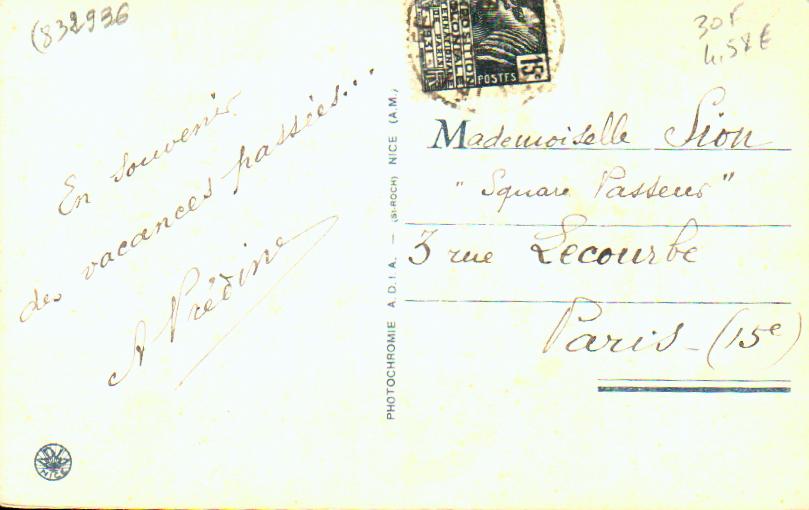 (832936
30F
4,58€
15c
POSTES
En souvenir
des vacances passées...
Mademoiselle Sion
"Square Pasteur"
3 rue Lecourbe
Paris - (15e)
PHOTOCHROMIE A.D.I.A. — (St-ROCH) NICE (A.M.)
NICE